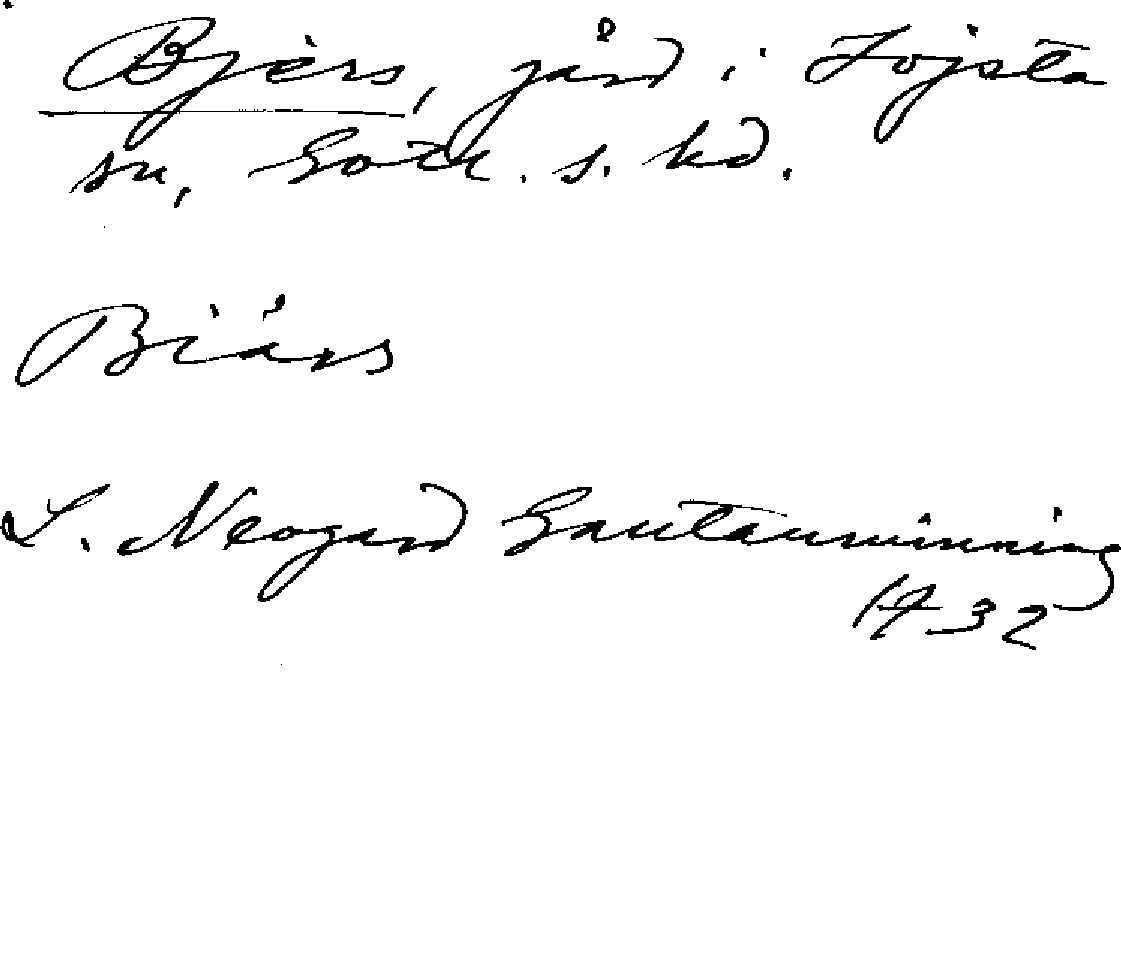 Bjärs, gård i Fojsta
sn, Gotl. s. hd.
Biärs
L. Neogard Gautauminning
1732